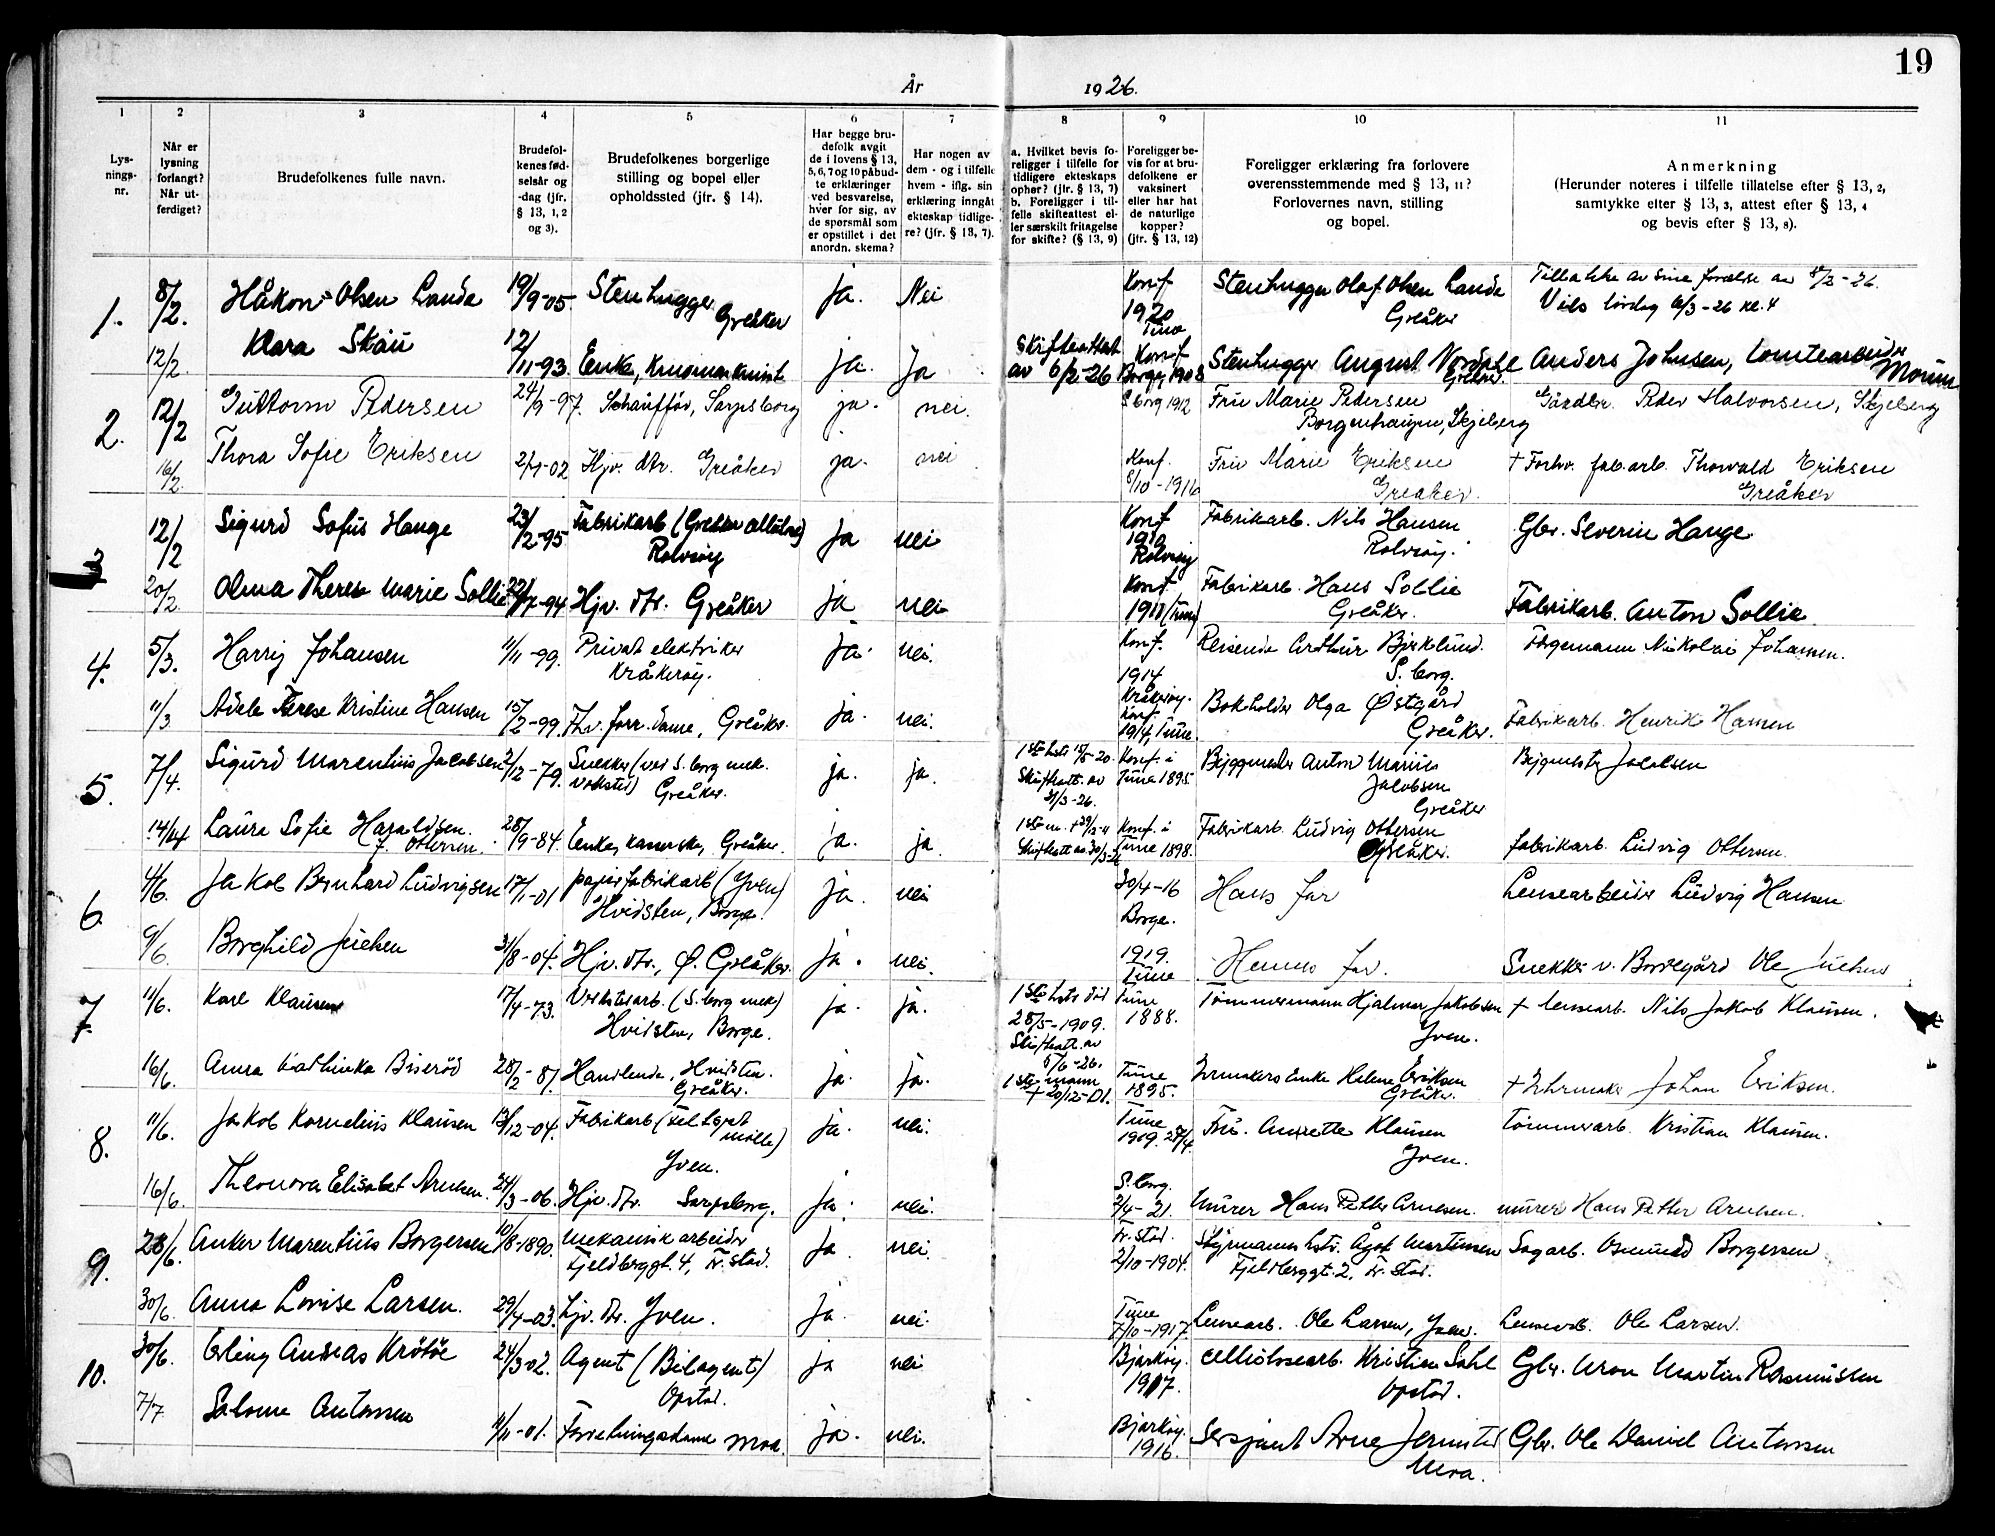 19
År 1926.
1 2 3 4 5 6 7 8 9 10 11
Lys-
nings-
nr.
Når er
lysning
forlangt?
Når ut-
ferdiget?
Brudefolkenes fulle navn.
Brudefol-
kenes fød-
selsår og
-dag (jfr.
§ 13, 1, 2
og 3).
Brudefolkenes borgerlige
stilling og bopel eller
opholdssted (jfr. § 14).
Har begge bru-
defolk avgit
de i lovens § 13,
5, 6, 7 og 10 påbud-
te erklæringer
ved besvarelse,
hver for sig, av
de spørsmål som
er opstillet i det
anordn. skema?
Har nogen av
dem - og i tilfelle
hvem - iflg. sin
erklæring inngåt
ekteskap tidlige-
re? (jfr. § 13, 7).
a. Hvilket bevis fo-
religger i tilfelle for
tidligere ekteskaps
ophør? (jfr. § 13, 7)
b. Foreligger i til-
felle skifteattest el-
ler særskilt fritagelse
for skifte? (§ 13, 9)
Foreligger be-
vis for at bru-
defolkene er
vaksinert
eller har hat
de naturlige
kopper?
(jfr. § 13, 12)
Foreligger erklæring fra forlovere
overensstemmende med § 13, 11?
Forlovernes navn, stilling
og bopel.
Anmerkning
(Herunder noteres i tilfelle tillatelse efter § 13, 2,
samtykke efter § 13, 3, attest efter § 13, 4
og bevis efter § 13, 8).
1. 8/2. Håkon Olsen Landa 19/9-05. Stenhugger Greåker ja. Nei Konf 1920 Tune Stenhugger Olaf Olsen Landa Greåker
8/2-26.
Viet lørdag 6/3-26 kl. 4
12/2. Klara Skau 12/11-93. Enke, ja. Ja Skifteattest av 6/2-26 Konf Borge, 1908 Stenhugger August Greåker Anders Johnsen, Tomtearbeider
2. 12/2 Guttorm Pedersen 24/9-97. Schauffør, Sarpsborg ja. nei. S.borg 1912 Fru Marie Pedersen Borgenhaugen, Skjeberg Gårdbr. Peder Halvorsen, Skjeberg
16/2. Thora Sofie Eriksen -02 Hjv. dtr. Greåker ja. nei Konf. /10-1916 Fru Marie Eriksen Greåker. † Forhv. fab.arb. Thorvald Eriksen Greåker
3 12/2 Sigurd Sofus Hauge 23/2-95 Fabrikarb (Greåker Cellulose) Rolvsøy ja nei Konf 1910 Rolvsøy Fabrikarb. Nils Hansen Rolvsøy. Gbr. Severin Hauge
20/2. Olma Therese Marie Sollie -94 Hjv. dtr. Greåker ja nei Konf 1911 (Tune) Fabrikarb. Hans Sollie Greåker. Fabrikarb. Anton Sollie
4. 5/3. Harry Johansen 11/11-99. Privat elektriker Kråkerøy. ja. nei. Konf. 1914 Kråkerøy. Reisende Arthur Bjerklund. S.borg. Nikolai Johansen.
11/3 Adele Terese Kristine Hansen 15/2-99. Fhv. forr. dame, Greåker. ja. nei. konf. 1914, Tune. Bokholder Olga Østgård Greåker. Fabrikarb. Henrik Hansen
5. 7/4. Sigurd Marentius Jacobsen 2/12-79. Snekker (ved S.borg mek. verksted) Greåker. ja. ja. 1ste hstr 15/5-20. Skifteatt. av 31/3-26. Konf. i Tune 1895 Byggmester Anton Marius Jacobsen Greåker Bygmester Jacobsen
14/4 Laura Sofie Haraldsen f. Ottersen. 28/9-84. Enke, Greåker. ja. ja. Konf. i Tune 1898. Fabrikarb. Ludvig Ottersen Greåker. fabrikarb. Ludvig Ottersen.
6. 4/6. Jakob Bernhard Ludvigsen 17/1-01 papirfabrikarb (Yven) Hvidsten, Borge. ja. nei 30/4-16 Borge. Hans far Lensearbeider Ludvig Hansen
9/6. Borghild Juelsen 31/8-04. Hjv. dtr., Ø. Greåker. ja. nei. 1919. Tune Hennes far. Snekker v. Borregård Ole Juelsen
7. 11/6. Karl Klausen 17/4-73. Verkstedarb. (S.borg mek) Hvidsten, Borge. ja. ja. 1ste hstr død 28/5-1909. Skifteatt. av 5/6-26. Tune 1888. Tømmermann Hjalmar Jakobsen Yven. † lensearb. Nils Jakob Klausen.
16/6. Anna Kathinka Biserød 28/2-81. Handlende, Hvidsten. Greåker. ja. ja. 1ste mann † 20/12-21. Tune 1895. Urmakers Enke Helene Eriksen Greåker. † Uhrmaker Johan Eriksen.
8. 11/6. Jakob Kornelius Klausen 13/12-04. Fabrikarb ( mølle) Yven. ja. nei. Tune 1919. 27/4. Fru. Annette Klausen Yven. Tømmerarb. Kristian Klausen.
16/6. Theonora Elisabet Arnesen. 24/3-06. Hjv. dtr. Sarpsborg. ja. nei. S.borg. 2/4-21. Murer Hans Petter Arnesen. murer Hans Petter Arnesen.
9. 28/6. Anker Marentius Borgersen 10/8-1890. mekanisk arbeider Fjeldberggt. 4, Fr.stad. ja. nei. Fr.stad. 2/10-1904. Styrmanns hstr. Ågot Martinsen Fjeldberggt. 2, Fr.stad. Sagarb. Osmund Borgersen
30/6. Anna Lovise Larsen. 29/4-03. hjv. dtr. Yven. ja. nei. Tune 7/10-1917. Lensearb. Ole Larsen, Yven. Lensearb. Ole Larsen.
10. 30/6. Erling Andreas Krötöe 24/3-02. Agent (Bilagent) Opstad. ja nei Bjarkøy. 1917. Cellulosearb. Kristian Sahl Opstad. Gbr. Aron Martin Rasmussen
7/7 Salome Antonsen 11/11-01. Forretningsdame Moa. ja. nei. Bjarkøy. 1916. Sersjant Arne Moa. Gbr. Ole Daniel Antonsen